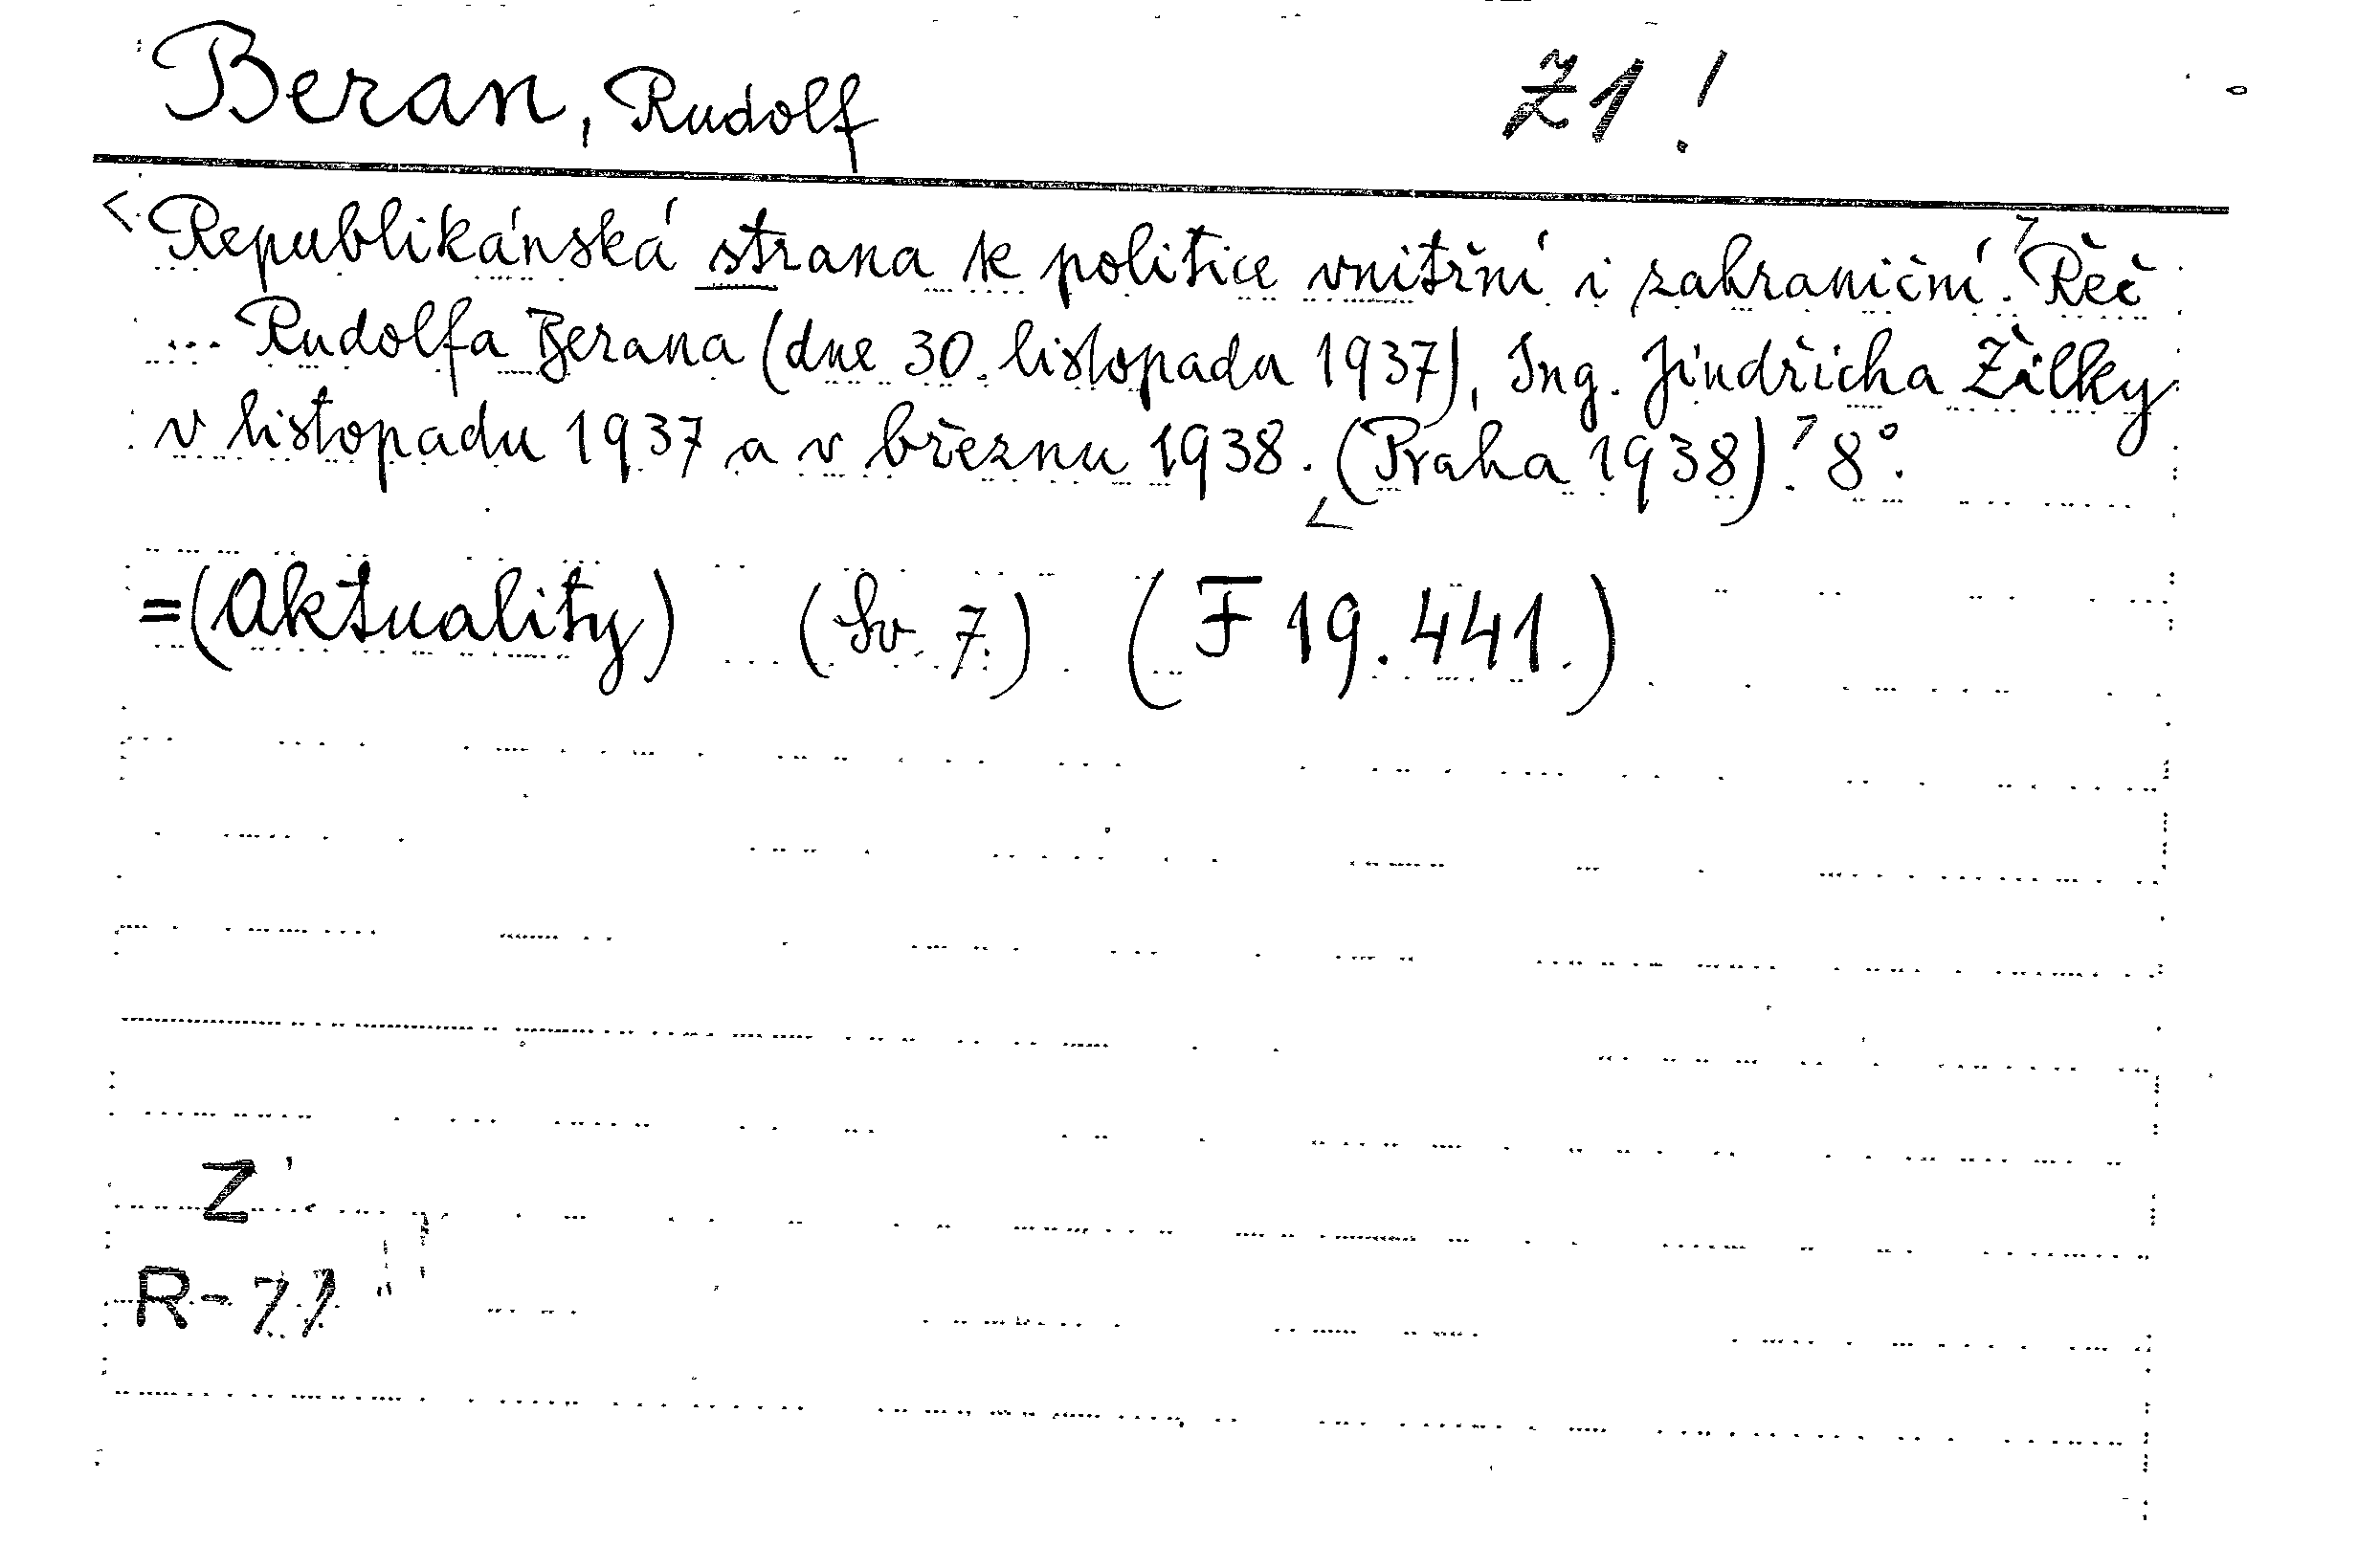 Beran, Rudolf Z1!
<Republikánská strana k politice vnitřní i zahraniční.> Řeč
... Rudolfa Berana (dne 30. listopadu 1937), Ing. Jindřicha Žilky
v listopadu 1937 a v březnu 1938. <(Praha 1938).> 8°.
=(Aktuality) (Sv. 7.) (F 19.441.)
Z
R-71